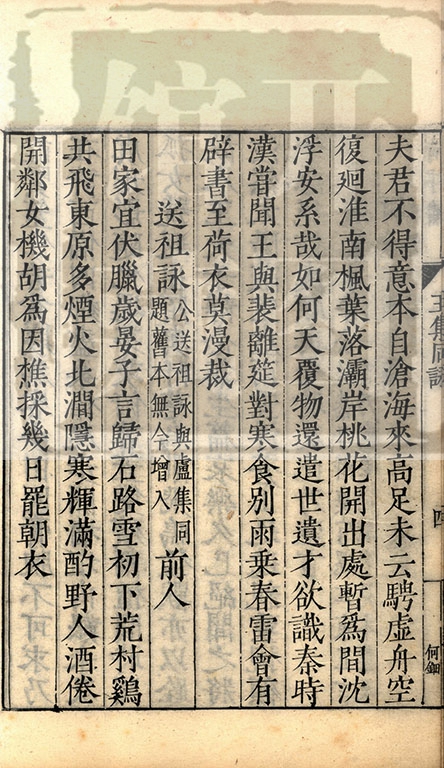 夫君不得意本自滄海來高足未云騁虛舟空
復廻淮南楓葉落灞岸桃花開出處暫爲間沈
浮安系哉如何天覆物還遣世遺才欲識秦時
漢嘗聞王與裴離筵對寒食別雨乗春雷會有
辟書至荷衣莫漫裁
送祖詠公送祖詠與盧集同題舊本無今增入前人
田家宜伏臘歲晏子言歸石路雪初下荒村鷄
共飛東原多煙火北澗隱寒輝滿酌野人酒倦
開鄰女機胡爲因樵採幾日罷朝衣
四
何鈿